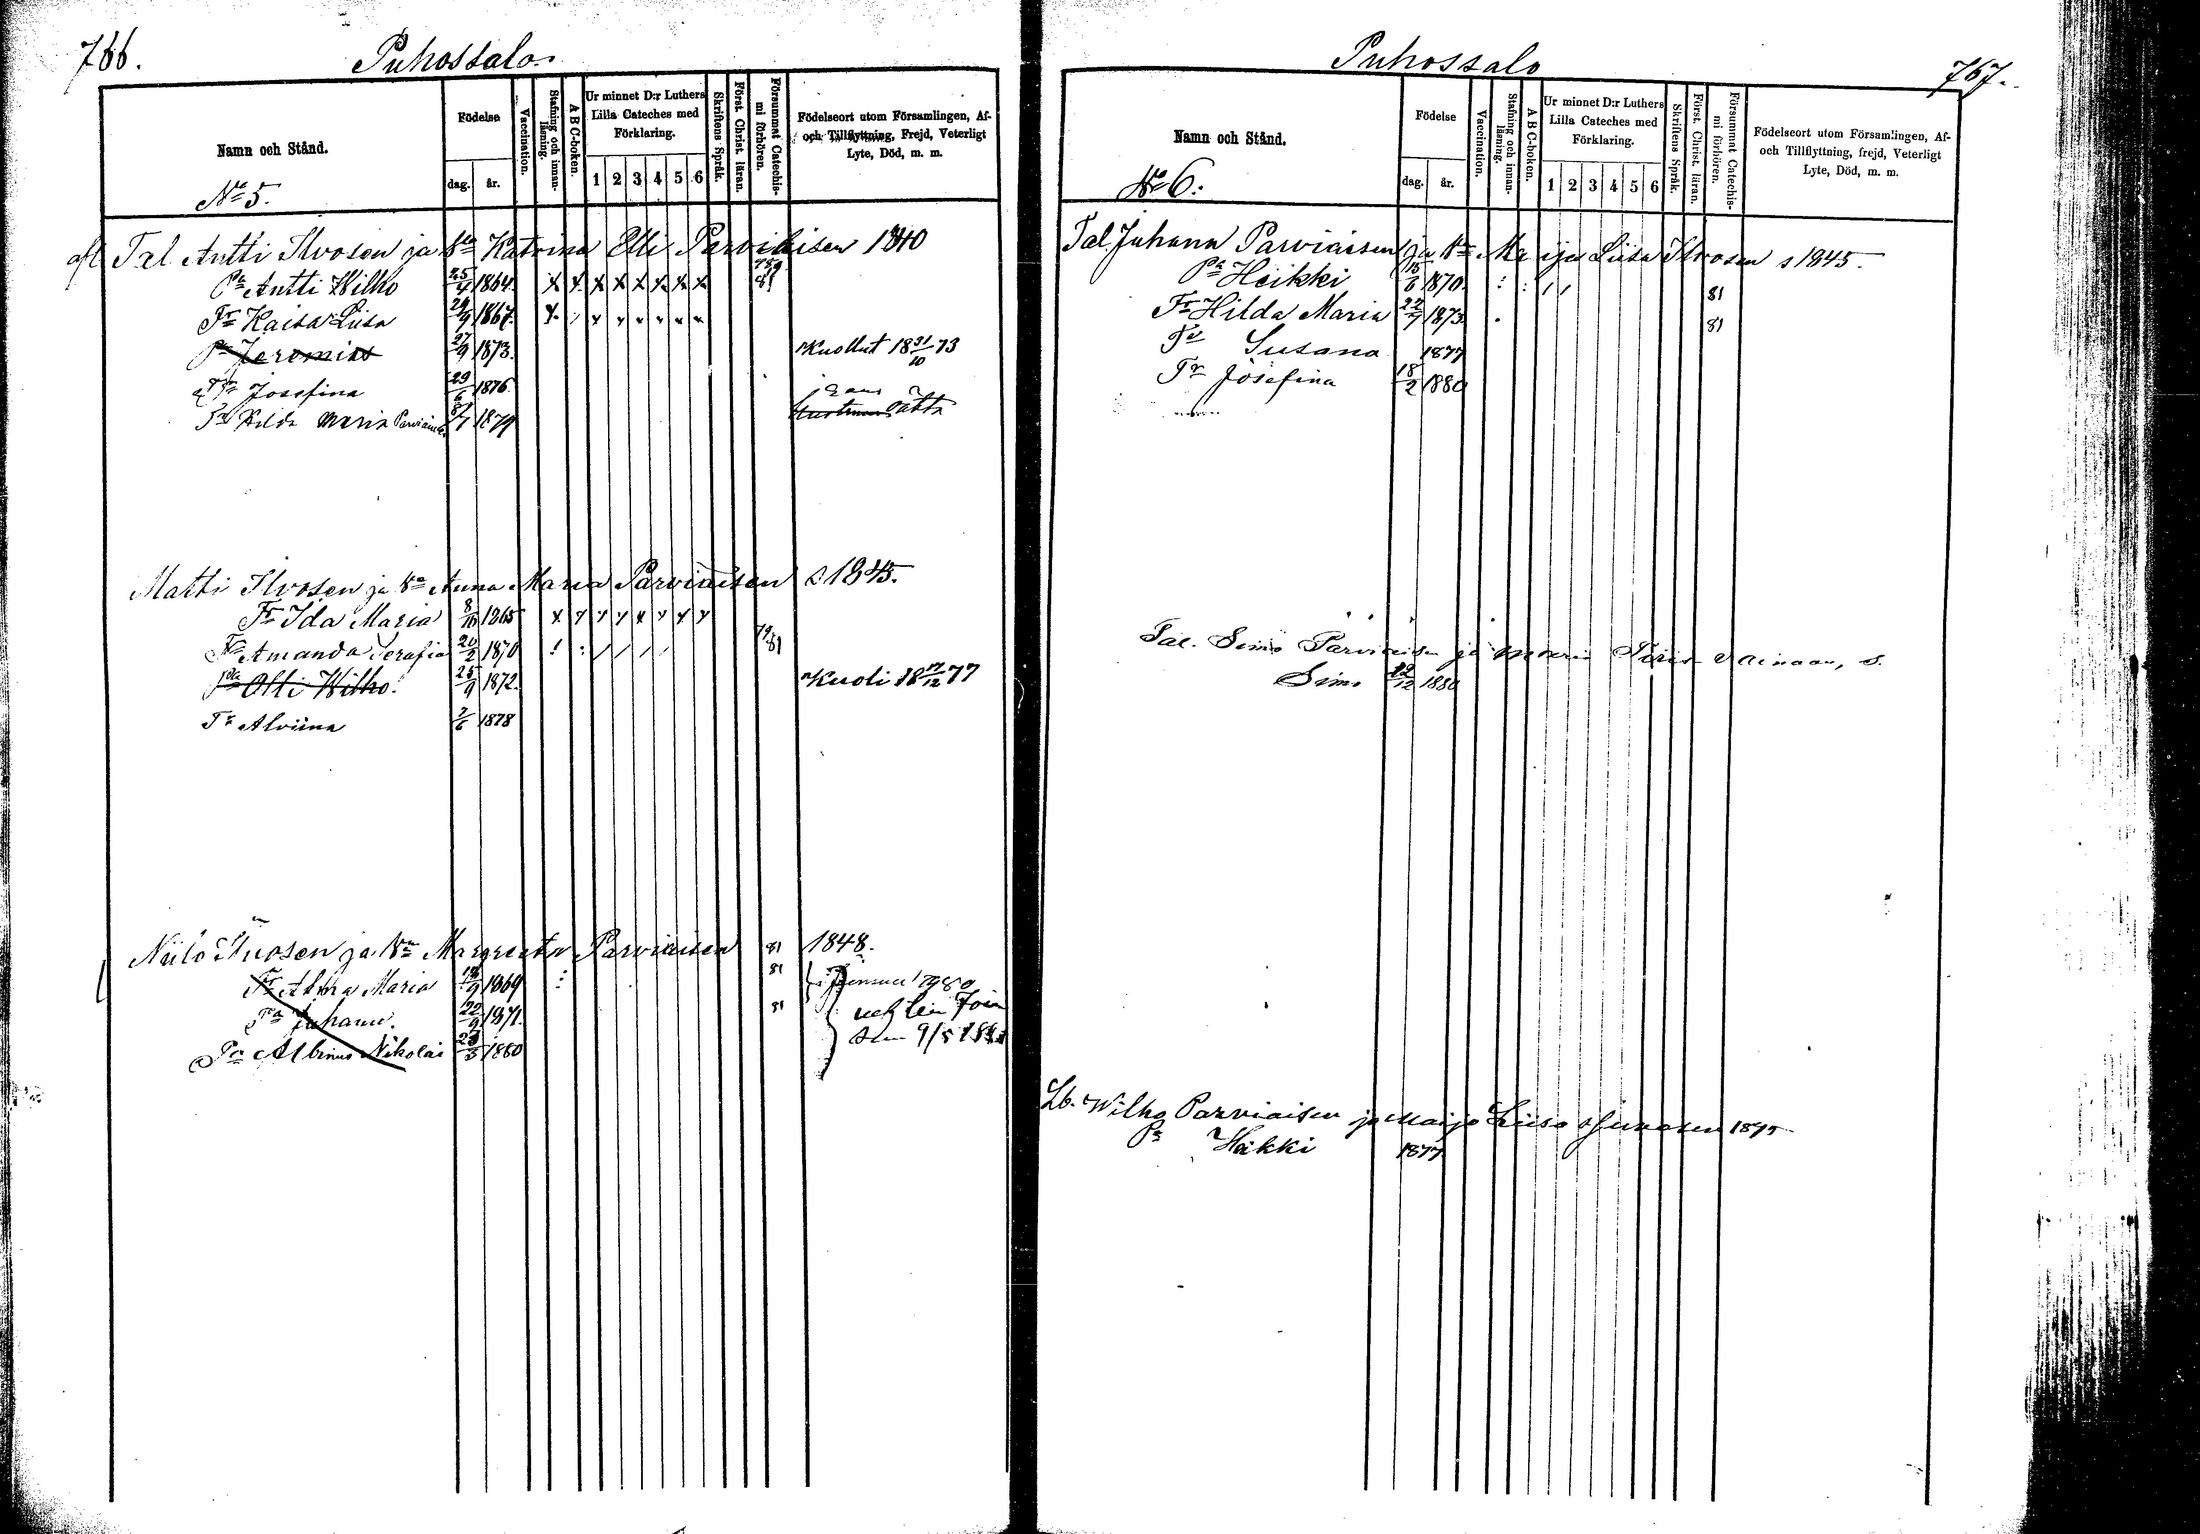 766.
Puhossalo
Namn och Stånd.
Födelse
dag.
år.
Vaccination.
Stafning och innan-
läsning.
A B C-boken.
Ur minnet D:r Luthers
Lilla Cateches med
Förklaring.
1 2 3 4 5 6
Skriftens Språk.
Först. Christ. läran.
Försummat Catechis-
mi förhören.
Födelseort utom Församlingen, Af-
och Tillflyttning, Frejd, Veterligt
Lyte, Död, m. m.
No 5.
Tal Antti Ilvosen ja Katrina Elli Parviaisen 1840
Pa Antti Wilho 25/4 1864. x x x x x x x x 81
Tr Kaisa Liisa 29/9 1867.
Pa Jeremias 27/9 1873. Kuollut 18 31/10 73
Tr Josefina 29/6 1876.
Tr Hilda Maria Parviainen 1879
Matti Ilvosen ja Va Anna Maria Parviaisen s 1845.
Tr Ida Maria 8/10 1865
Tr Amanda Serafia 20/2 1870 79 81
Pa Olli Wilho. 25/9 1872. Kuoli 18 17/12 77
Tr Alviina 2/6 1878
Niilo Ilvosen ja Va Margreeta Parviaisen 81 1848.
Tr Anna Maria 18/9 1869 81
Pa Juhana. 22/9 1871. 81
Pa Albinus Nikolai 1880
767.
Puhossalo
Namn och Stånd.
Födelse
dag.
år.
Vaccination.
Stafning och innan-
läsning.
A B C-boken.
Ur minnet D:r Luthers
Lilla Cateches med
Förklaring.
1 2 3 4 5 6
Skriftens Språk.
Först. Christ. läran.
Försummat Catechis-
mi förhören.
Födelseort utom Församlingen, Af-
och Tillflyttning, frejd, Veterligt
Lyte, Död, m. m.
No 6.
Tal. Juhana Parviaisen ja Va Maija Liisa Ilvosen s 1845.
Pa Heikki 1870. 81
Tr Hilda Maria 1873. 81
Tr Susana 1877
Tr Josefina 18/2 1880
Tal. Simo Parviaisen ja Maria
Simo 1880
Lb. Wilho Parviaisen ja Maija Liisa
Pa Heikki 1877